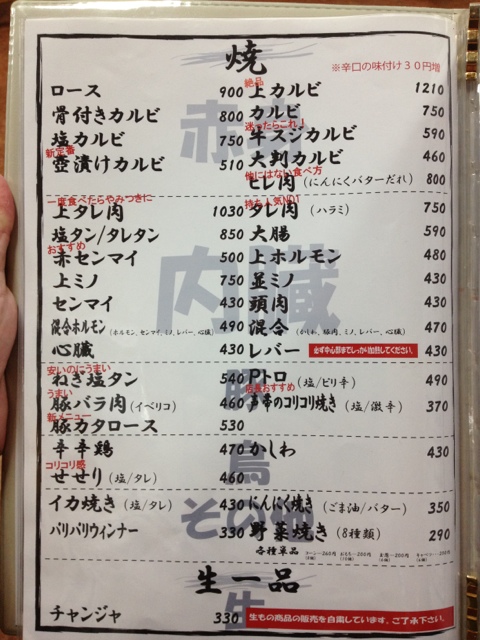 焼
※辛口の味付け30円増
ロース 900
絶品
上カルビ 1210
骨付きカルビ 800
カルビ 750
塩カルビ 750
迷ったらこれ!
牛スジカルビ 590
新定番
壺漬けカルビ 510
大判カルビ 460
他にはない食べ方
ヒレ肉 (にんにくバターだれ) 800
一度食べたらやみつきに
上タレ肉 1030
持ち人気NO1
タレ肉 (ハラミ) 750
塩タン/タレタン 850
大腸 590
おすすめ
赤センマイ 500
上ホルモン 480
上ミノ 750
並ミノ 430
センマイ 430
頭肉 430
混合ホルモン (ホルモン、センマイ、ミノ、レバー、心臓) 490
混合 (かしわ、豚肉、ミノ、レバー、心臓) 470
心臓 430
レバー 必ず中心部までしっかり加熱してください。 430
安いのにうまい
ねぎ塩タン 540
Pトロ (塩/ピリ辛) 490
うまい
豚バラ肉 (イベリコ) 460
店長おすすめ
声帯のコリコリ焼き (塩/激辛) 370
新メニュー
豚カタロース 530
辛辛鶏 470
かしわ 430
コリコリ感
せせり (塩/タレ) 460
イカ焼き (塩/タレ) 430
にんにく焼き (ごま油/バター) 350
バリバリウィンナー 330
野菜焼き (8種類) 290
各種単品
生一品
チャンジャ 330
生もの商品の販売を自粛しています。ご了承下さい。
赤肉
内臓
豚
鳥
その他
生